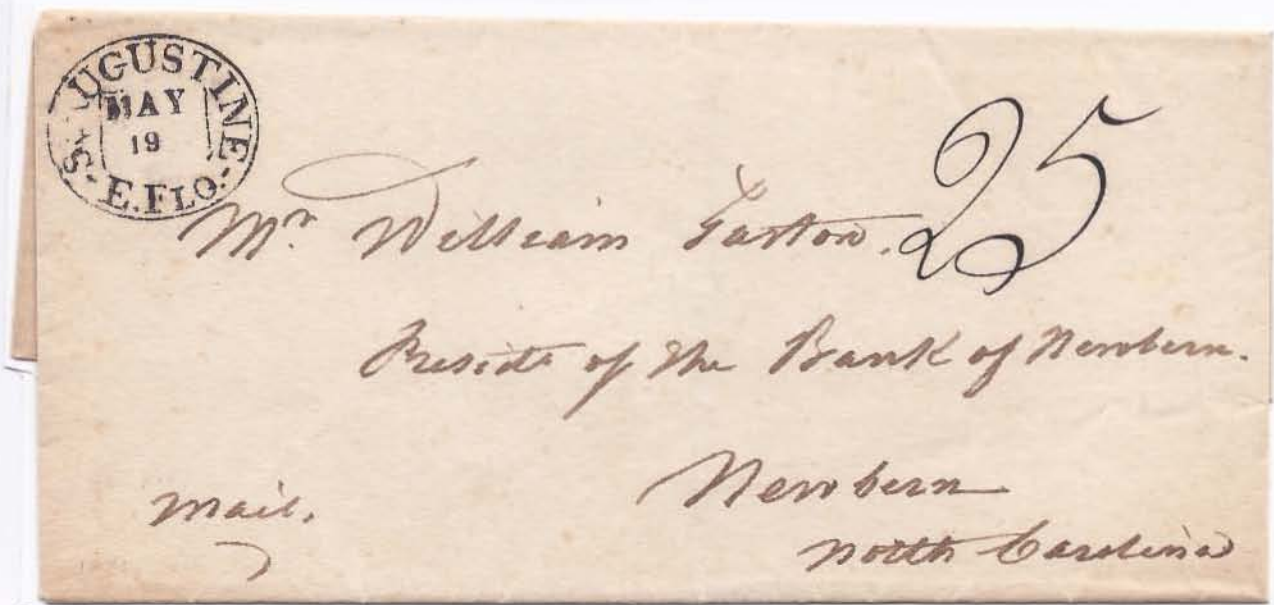 ST AUGUSTINE
MAY
19
E.FLO.
25
Mr. William Gaston.
Presidt of the Bank of Newbern.
Newbern
Mail.
North Carolina